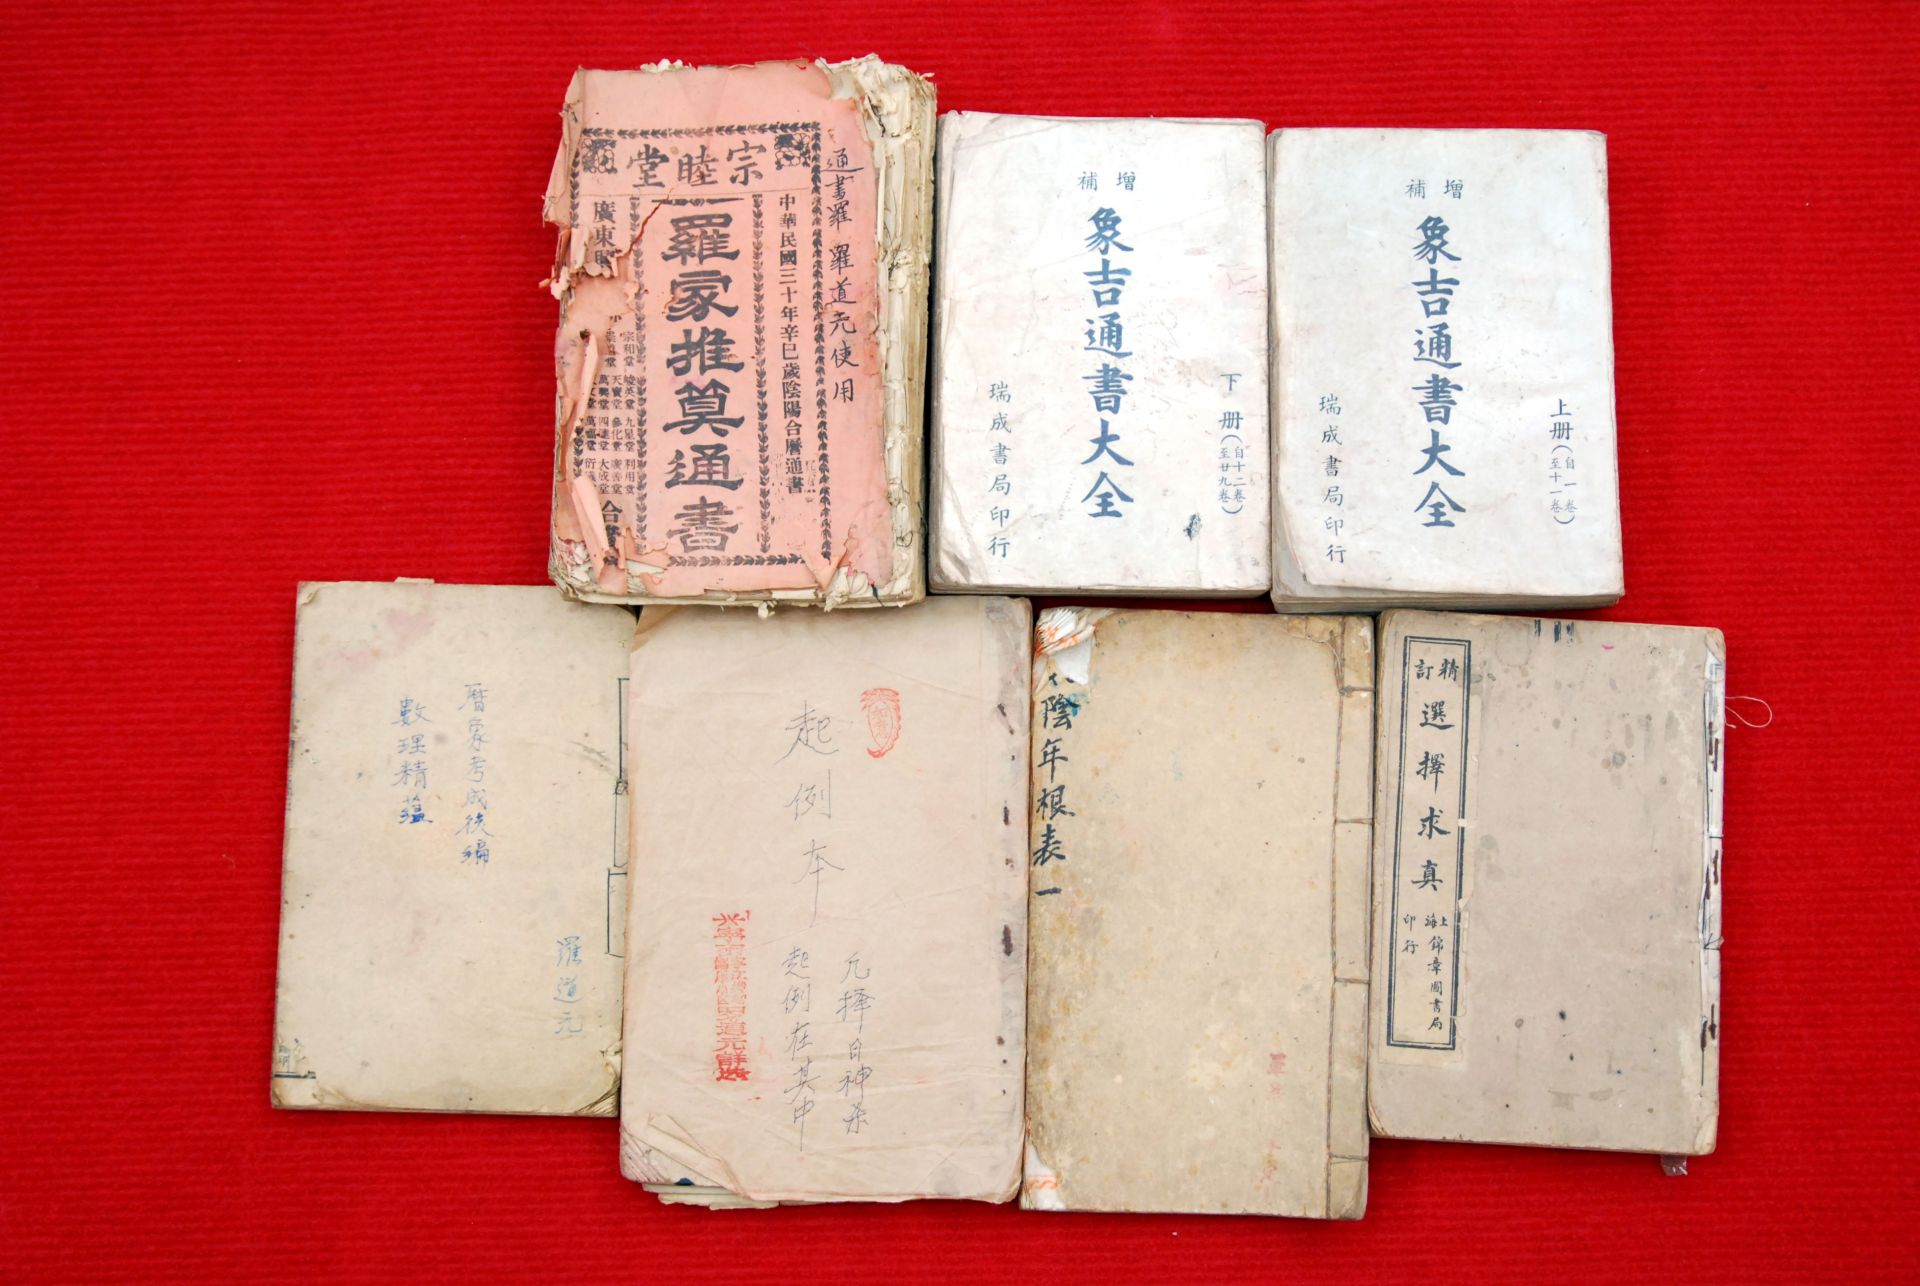 宗睦堂
通書羅 羅道元使用
中華民國三十年辛巳歲陰陽合曆通書
羅家推算通書
廣東
增補
象吉通書大全
下册（自十二卷至廿九卷）
瑞成書局印行
增補
象吉通書大全
上册（自一卷至十一卷）
瑞成書局印行
曆象考成後編
數理精蘊
羅道元
起例本
凡擇日神杀
起例在其中
陰年根表一
精訂
選擇求真
上海錦章圖書局
印行